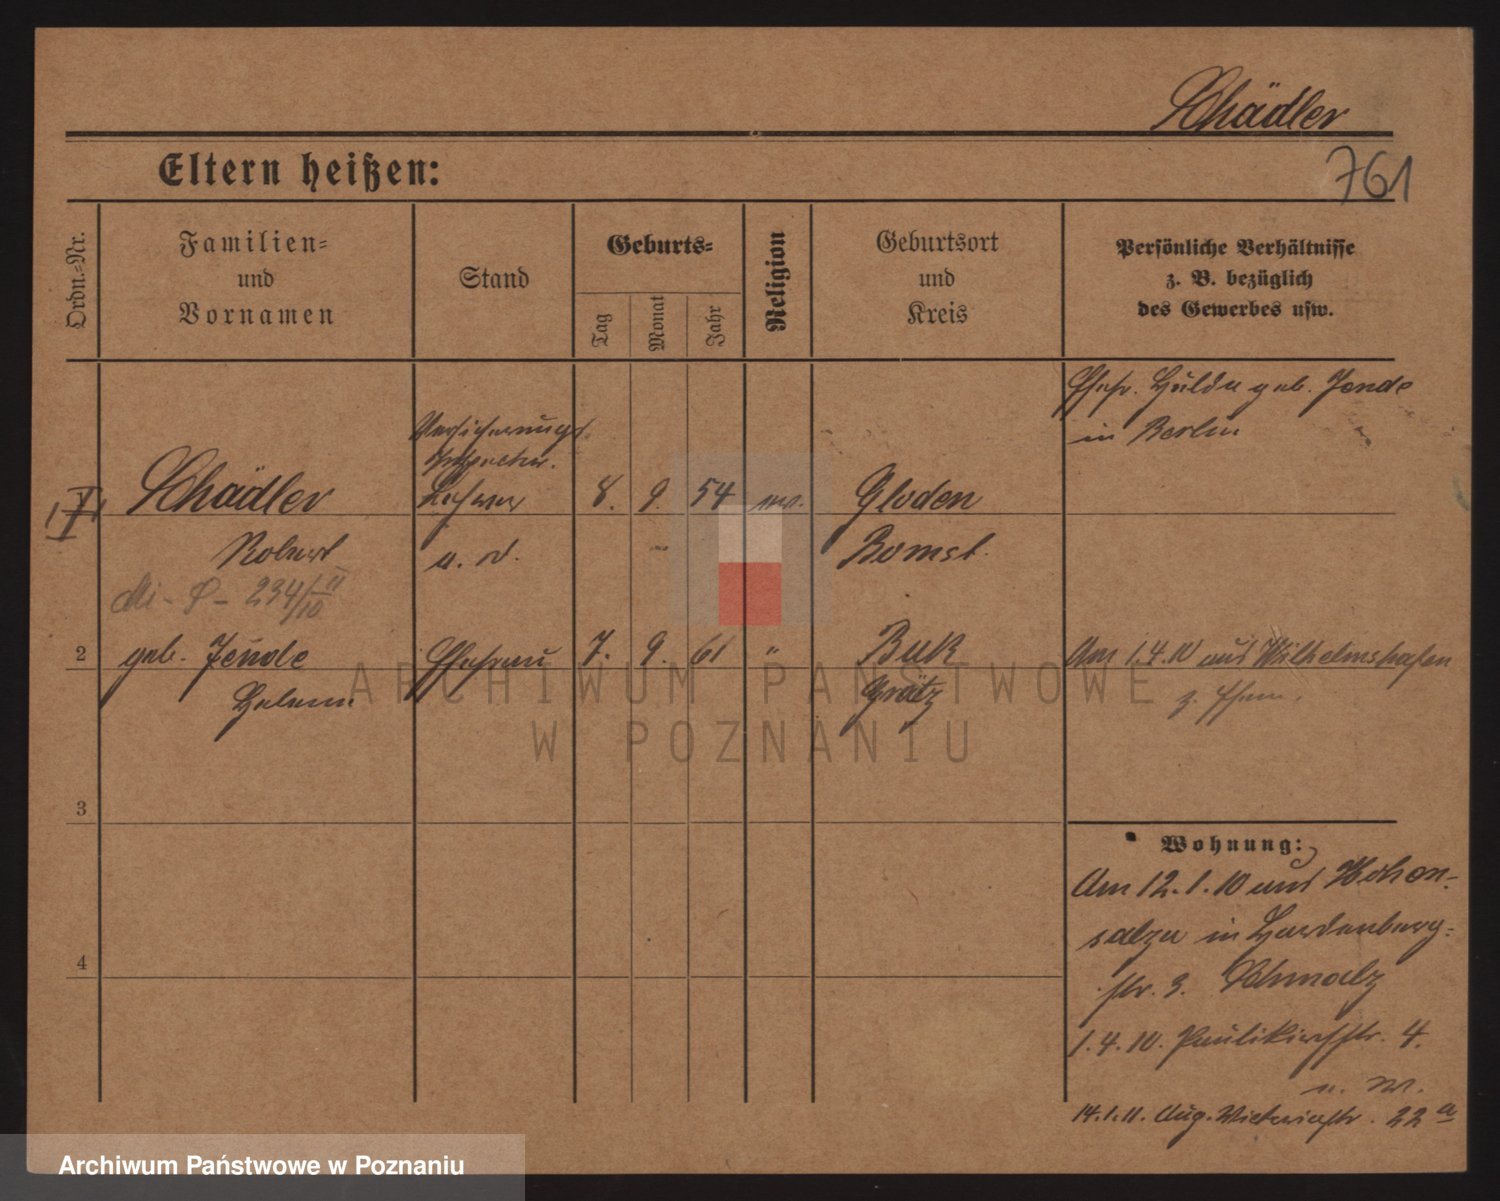 Schädler
761
Eltern heißen:
Ordn.=Nr.
Familien=
und
Vornamen
Stand
Geburts=
Tag
Monat
Jahr
Religion
Geburtsort
und
Kreis
Persönliche Verhältnisse
z. B. bezüglich
des Gewerbes usw.
Ehefr. Hulda geb. Jende
in Berlin
Versicherungs
Inspector.
Schädler
Lehrer
8. 9. 54
Gloden
Robert
a. D.
Bomst.
234/10
2
geb. Jende
Ehefrau
7. 9. 61
"
Buk
Am 1.4.10 aus Wilhelmshafen
Grätz
z. Ehem.
ARCHIWUM PAŃSTWOWE
W POZNANIU
3
Wohnung:
Am 12.1.10 aus Hohen-
salza in Hardenberg-
str. 3. Schmalz
1.4.10. Paulikirchstr. 4.
14.1.11. Aug. Victoriastr. 22 a
4
Archiwum Państwowe w Poznaniu